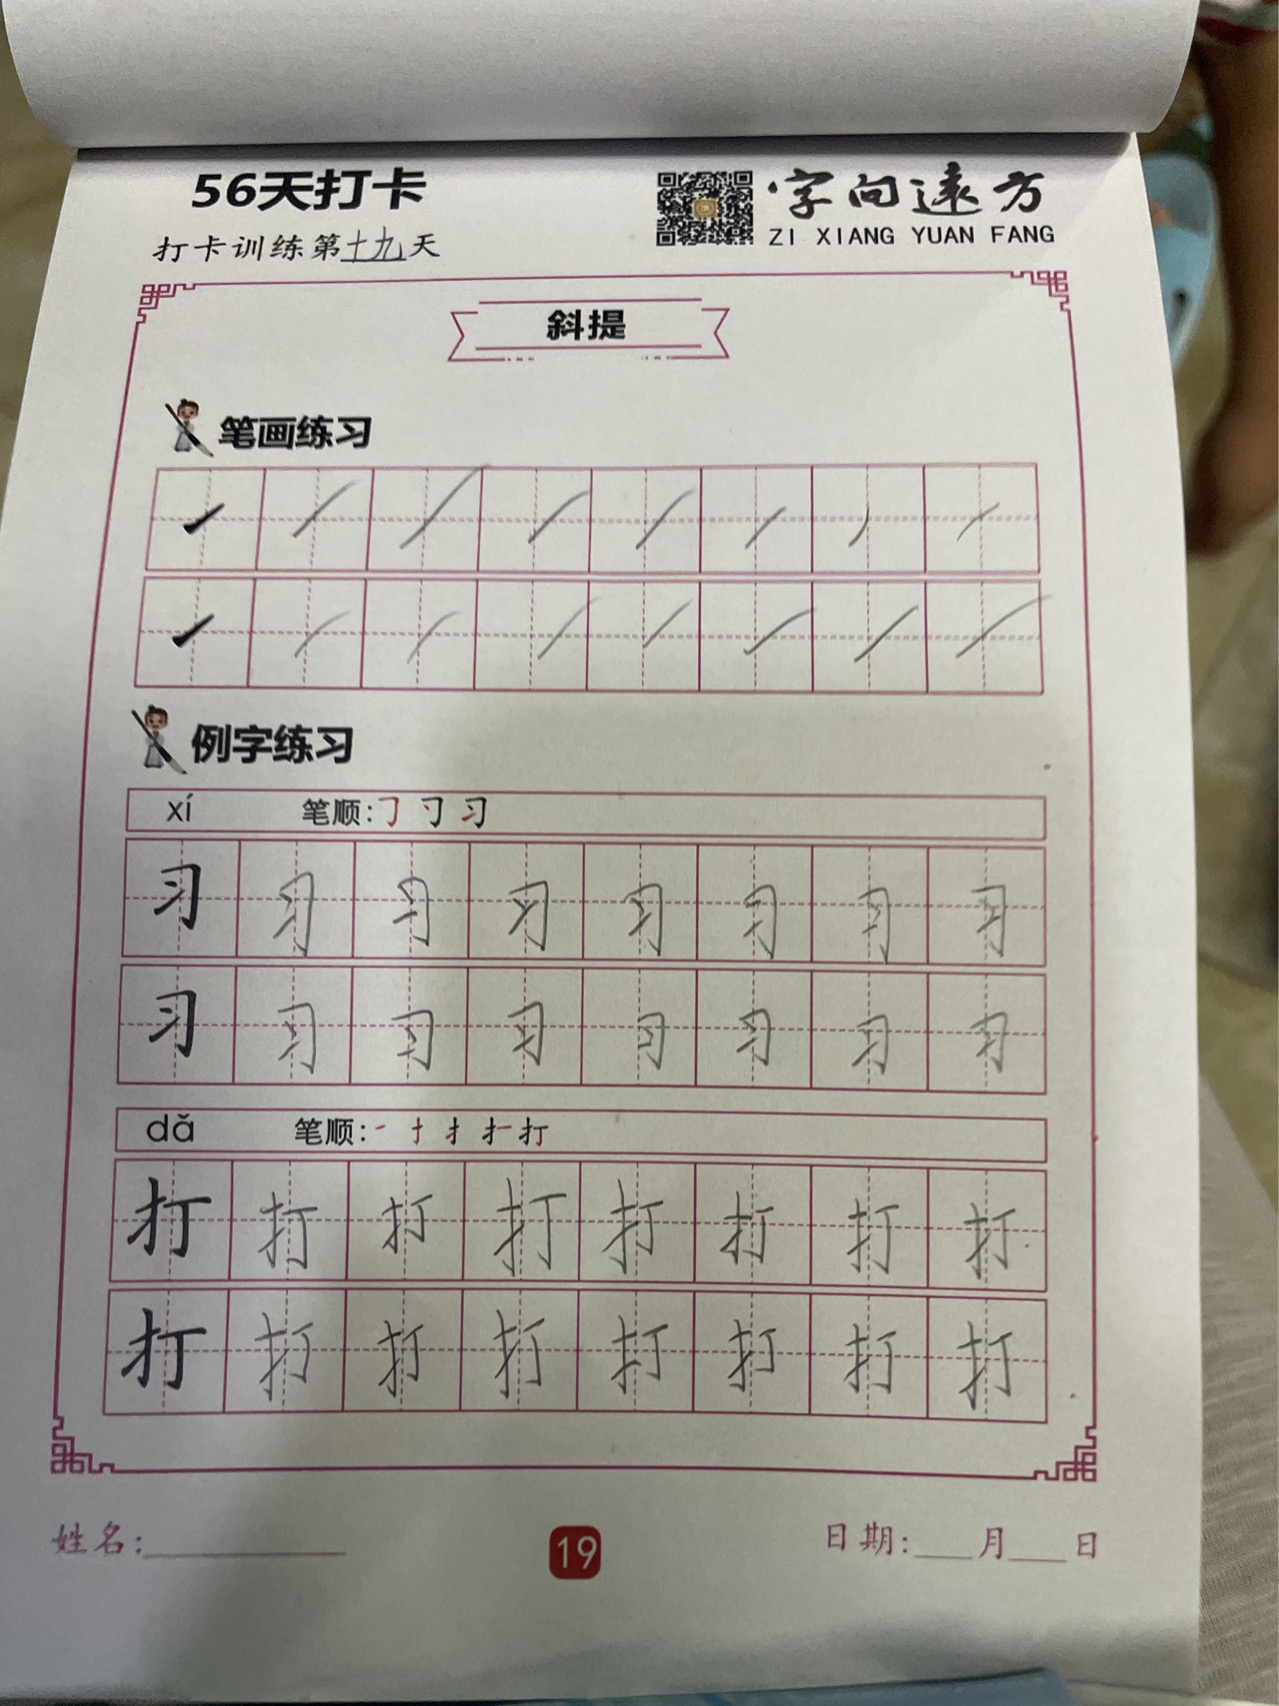 56天打卡
字向远方
ZI XIANG YUAN FANG
打卡训练第十九天
斜提
笔画练习
例字练习
xí 笔顺:㇆ 刁 习
习 习 习 习 习 习 习 习
习 习 习 习 习 习 习 习
dǎ 笔顺:一 十 扌 扌一 打
打 打 打 打 打 打 打 打
打 打 打 打 打 打 打 打
姓名:
19
日期: 月 日